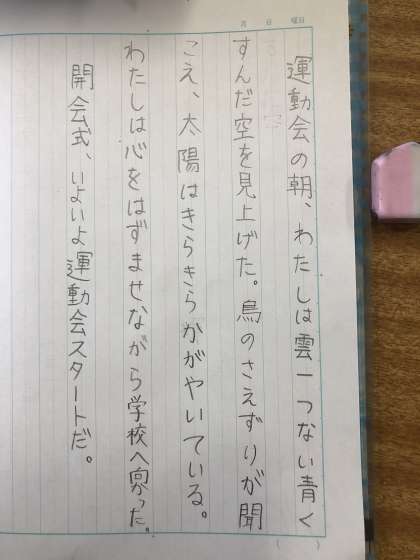 月 日 曜日
運動会の朝、わたしは雲一つない青く
すんだ空を見上げた。鳥のさえずりが聞
こえ、太陽はきらきらかがやいている。
わたしは心をはずませながら学校へ向かった。
開会式、いよいよ運動会スタートだ。
( )